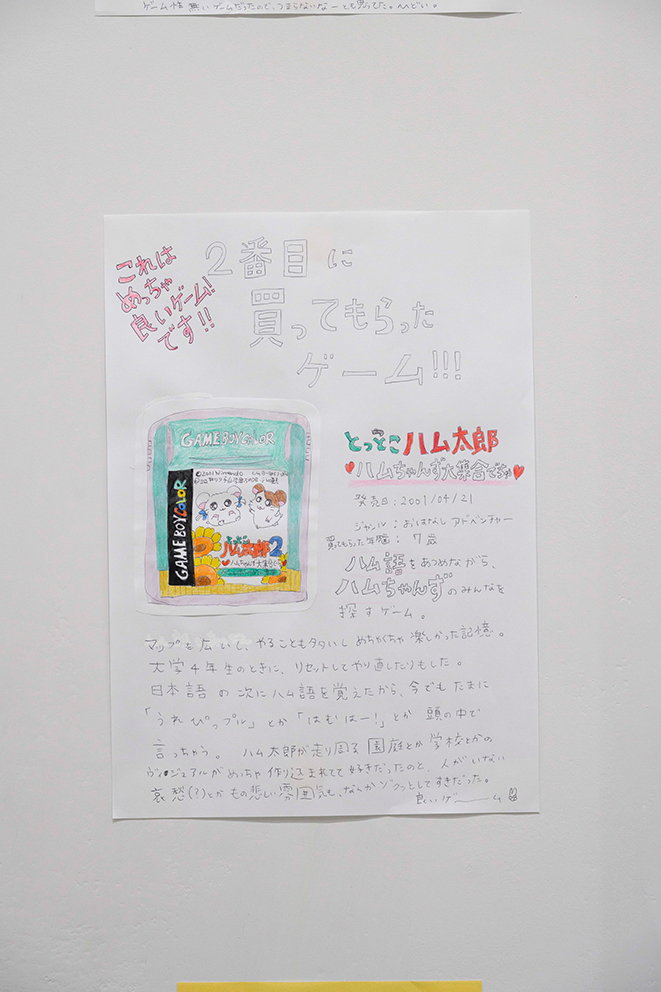 ゲーム性無いゲームだったので、つまらないなーとも思ってた。
これは
めっちゃ
良いゲーム!
です!!
2番目に
買ってもらった
ゲーム!!!
GAMEBOYCOLOR
GAMEBOYCOLOR
とっとこ
ハム太郎2
ハムちゃんず大集合
とっとこハム太郎
ハムちゃんず大集合でちゅ
発売日:2001/04/21
ジャンル:おはなしアドベンチャー
買ってもらった年齢:7歳
ハム語をあつめながら、
ハムちゃんずのみんなを
探すゲーム。
マップも広いし、やることも多いしめちゃくちゃ楽しかった記憶。
大学4年生のときに、リセットしてやり直したりもした。
日本語の次にハム語を覚えたから、今でもたまに
「うれぴっプル」とか「はむはー!」とか頭の中で
言っちゃう。ハム太郎が走り回る園庭とか学校とかの
ヴィジュアルがめっちゃ作り込まれてて好きだったのと、人がいない
哀愁(?)とかもの悲しい雰囲気も、なんかゾクっとしてすきだった。
良いゲーーム